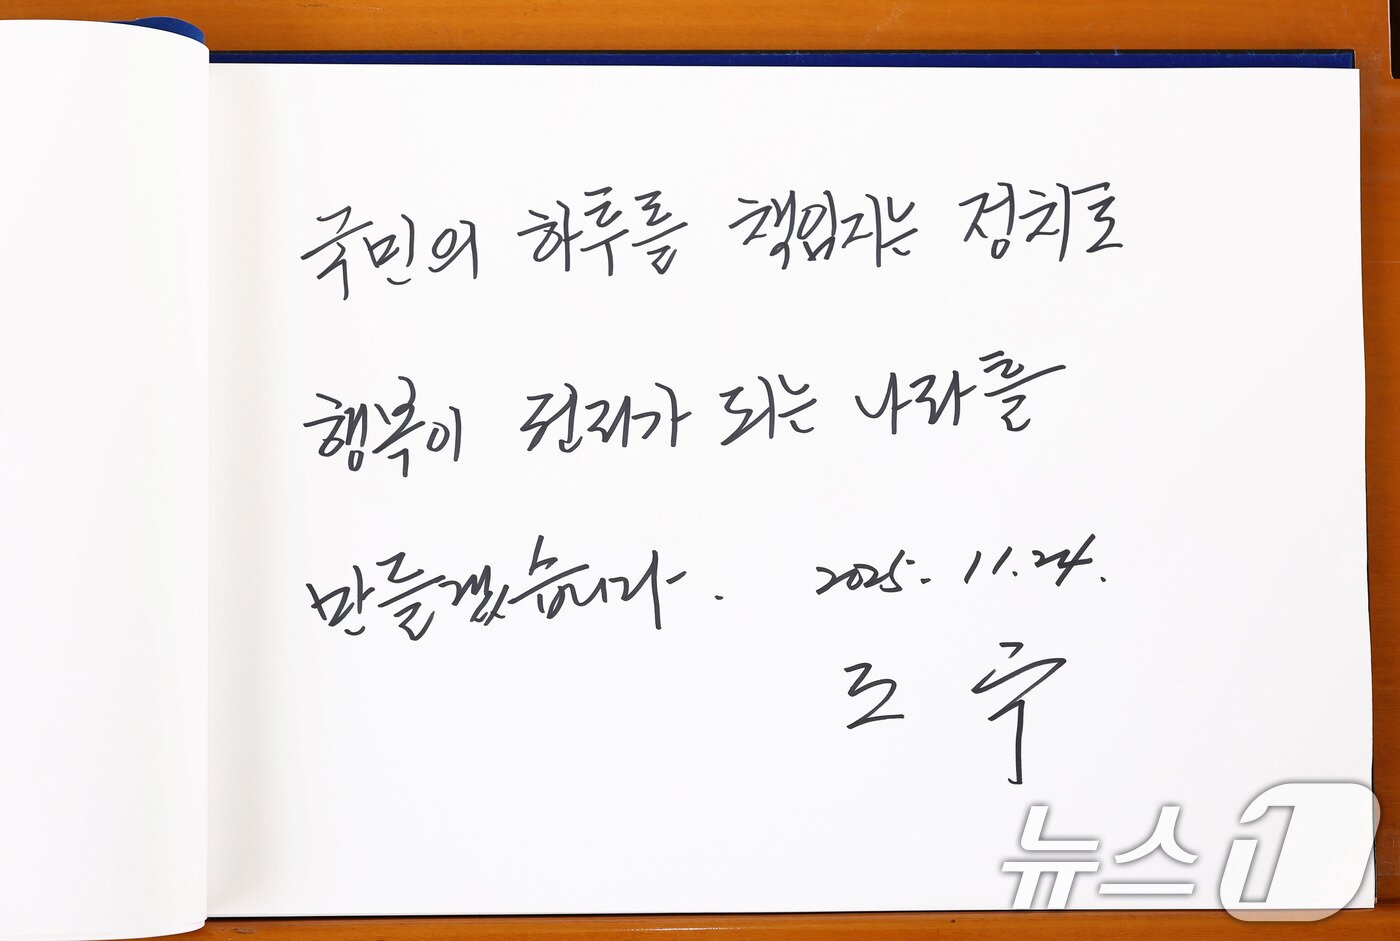 국민의 하루를 책임지는 정치로
행복이 권리가 되는 나라를
만들겠습니다.
2025. 11. 24.
조 국
뉴스1